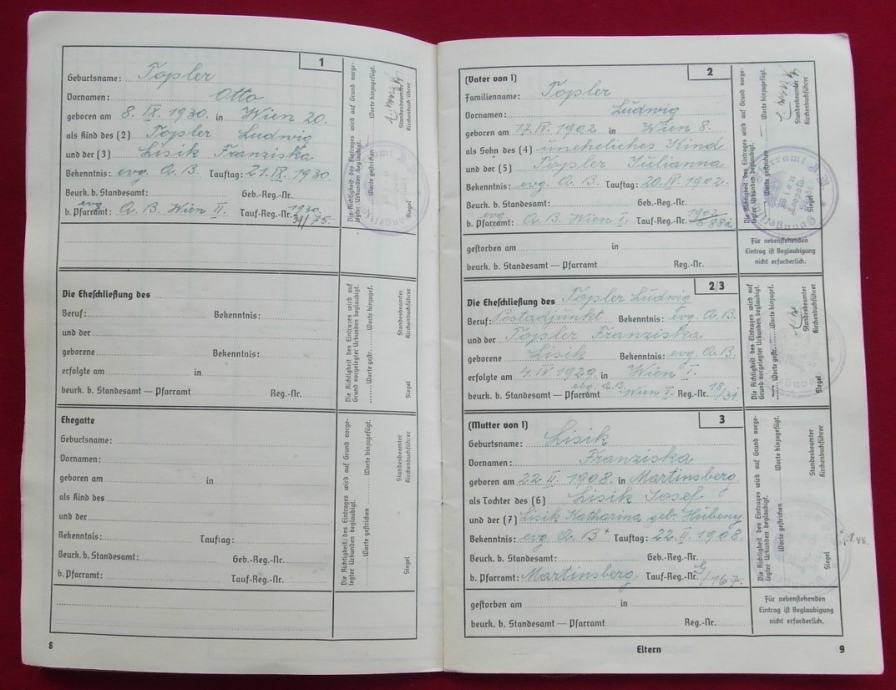 1
Geburtsname: Topler
Vornamen: Otto
geboren am 8. IX. 1930. in Wien 20.
als Kind des (2) Topler Ludwig
und der (3) Lisik Franziska
Bekenntnis: evg. A. B. Tauftag: 21. IX. 1930.
Beurk. b. Standesamt: Geb.-Reg.-Nr.
b. evg. Pfarramt: A. B. Wien II. Tauf-Reg.-Nr. 1930/75.
Die Richtigkeit des Eintrages wird auf Grund vorgelegter Urkunden beglaubigt.
Worte gestrichen Worte hinzugefügt.
Standesbeamter
Kirchenbuchführer
Siegel
Die Eheschließung des
Beruf: Bekenntnis:
und der
geborene Bekenntnis:
erfolgte am in
beurk. b. Standesamt — Pfarramt Reg.-Nr.
Die Richtigkeit des Eintrages wird auf Grund vorgelegter Urkunden beglaubigt.
Worte gestr. Worte hinzugef.
Standesbeamter
Kirchenbuchführer
Siegel
Ehegatte
Geburtsname:
Vornamen:
geboren am in
als Kind des
und der
Bekenntnis: Tauftag:
Beurk. b. Standesamt: Geb.-Reg.-Nr.
b. Pfarramt: Tauf-Reg.-Nr.
Die Richtigkeit des Eintrages wird auf Grund vorgelegter Urkunden beglaubigt.
Worte gestrichen Worte hinzugefügt.
Standesbeamter
Kirchenbuchführer
Siegel
8
(Vater von 1) 2
Familienname: Topler
Vornamen: Ludwig
geboren am 17. IV. 1902 in Wien 8.
als Sohn des (4) uneheliches Kind
und der (5) Topler Julianna
Bekenntnis: evg. A. B. Tauftag: 20. IV. 1902.
Beurk. b. Standesamt: Geb.-Reg.-Nr.
b. evg. Pfarramt: A. B. Wien I. Tauf-Reg.-Nr. 1902
gestorben am in
beurk. b. Standesamt — Pfarramt Reg.-Nr.
Die Richtigkeit des Eintrages wird auf Grund vorgelegter Urkunden beglaubigt.
Worte gestrichen Worte hinzugefügt.
Standesbeamter
Kirchenbuchführer
Siegel
Für nebenstehenden
Eintrag ist Beglaubigung
nicht erforderlich.
2/3
Die Eheschließung des Topler Ludwig
Beruf: Postadjunkt Bekenntnis: evg. A. B.
und der Topler Franziska
geborene Lisik Bekenntnis: evg. A. B.
erfolgte am 4. IV. 1929. in Wien I.
beurk. b. Standesamt — Pfarramt evg. A. B. Wien I. Reg.-Nr. 18/31
Die Richtigkeit des Eintrages wird auf Grund vorgelegter Urkunden beglaubigt.
Worte gestr. Worte hinzugef.
Standesbeamter
Kirchenbuchführer
Siegel
(Mutter von 1) 3
Geburtsname: Lisik
Vornamen: Franziska
geboren am 22. II. 1908. in Martinsberg
als Tochter des (6) Lisik Josef
und der (7) Lisik Katharina geb. Hubeny
Bekenntnis: evg. A. B. Tauftag: 22. 1908.
Beurk. b. Standesamt: Geb.-Reg.-Nr.
b. Pfarramt: Martinsberg Tauf-Reg.-Nr. /167.
gestorben am in
beurk. b. Standesamt — Pfarramt Reg.-Nr.
Die Richtigkeit des Eintrages wird auf Grund vorgelegter Urkunden beglaubigt.
Worte gestrichen Worte hinzugefügt.
Standesbeamter
Kirchenbuchführer
Siegel
Für nebenstehenden
Eintrag ist Beglaubigung
nicht erforderlich.
Eltern
9